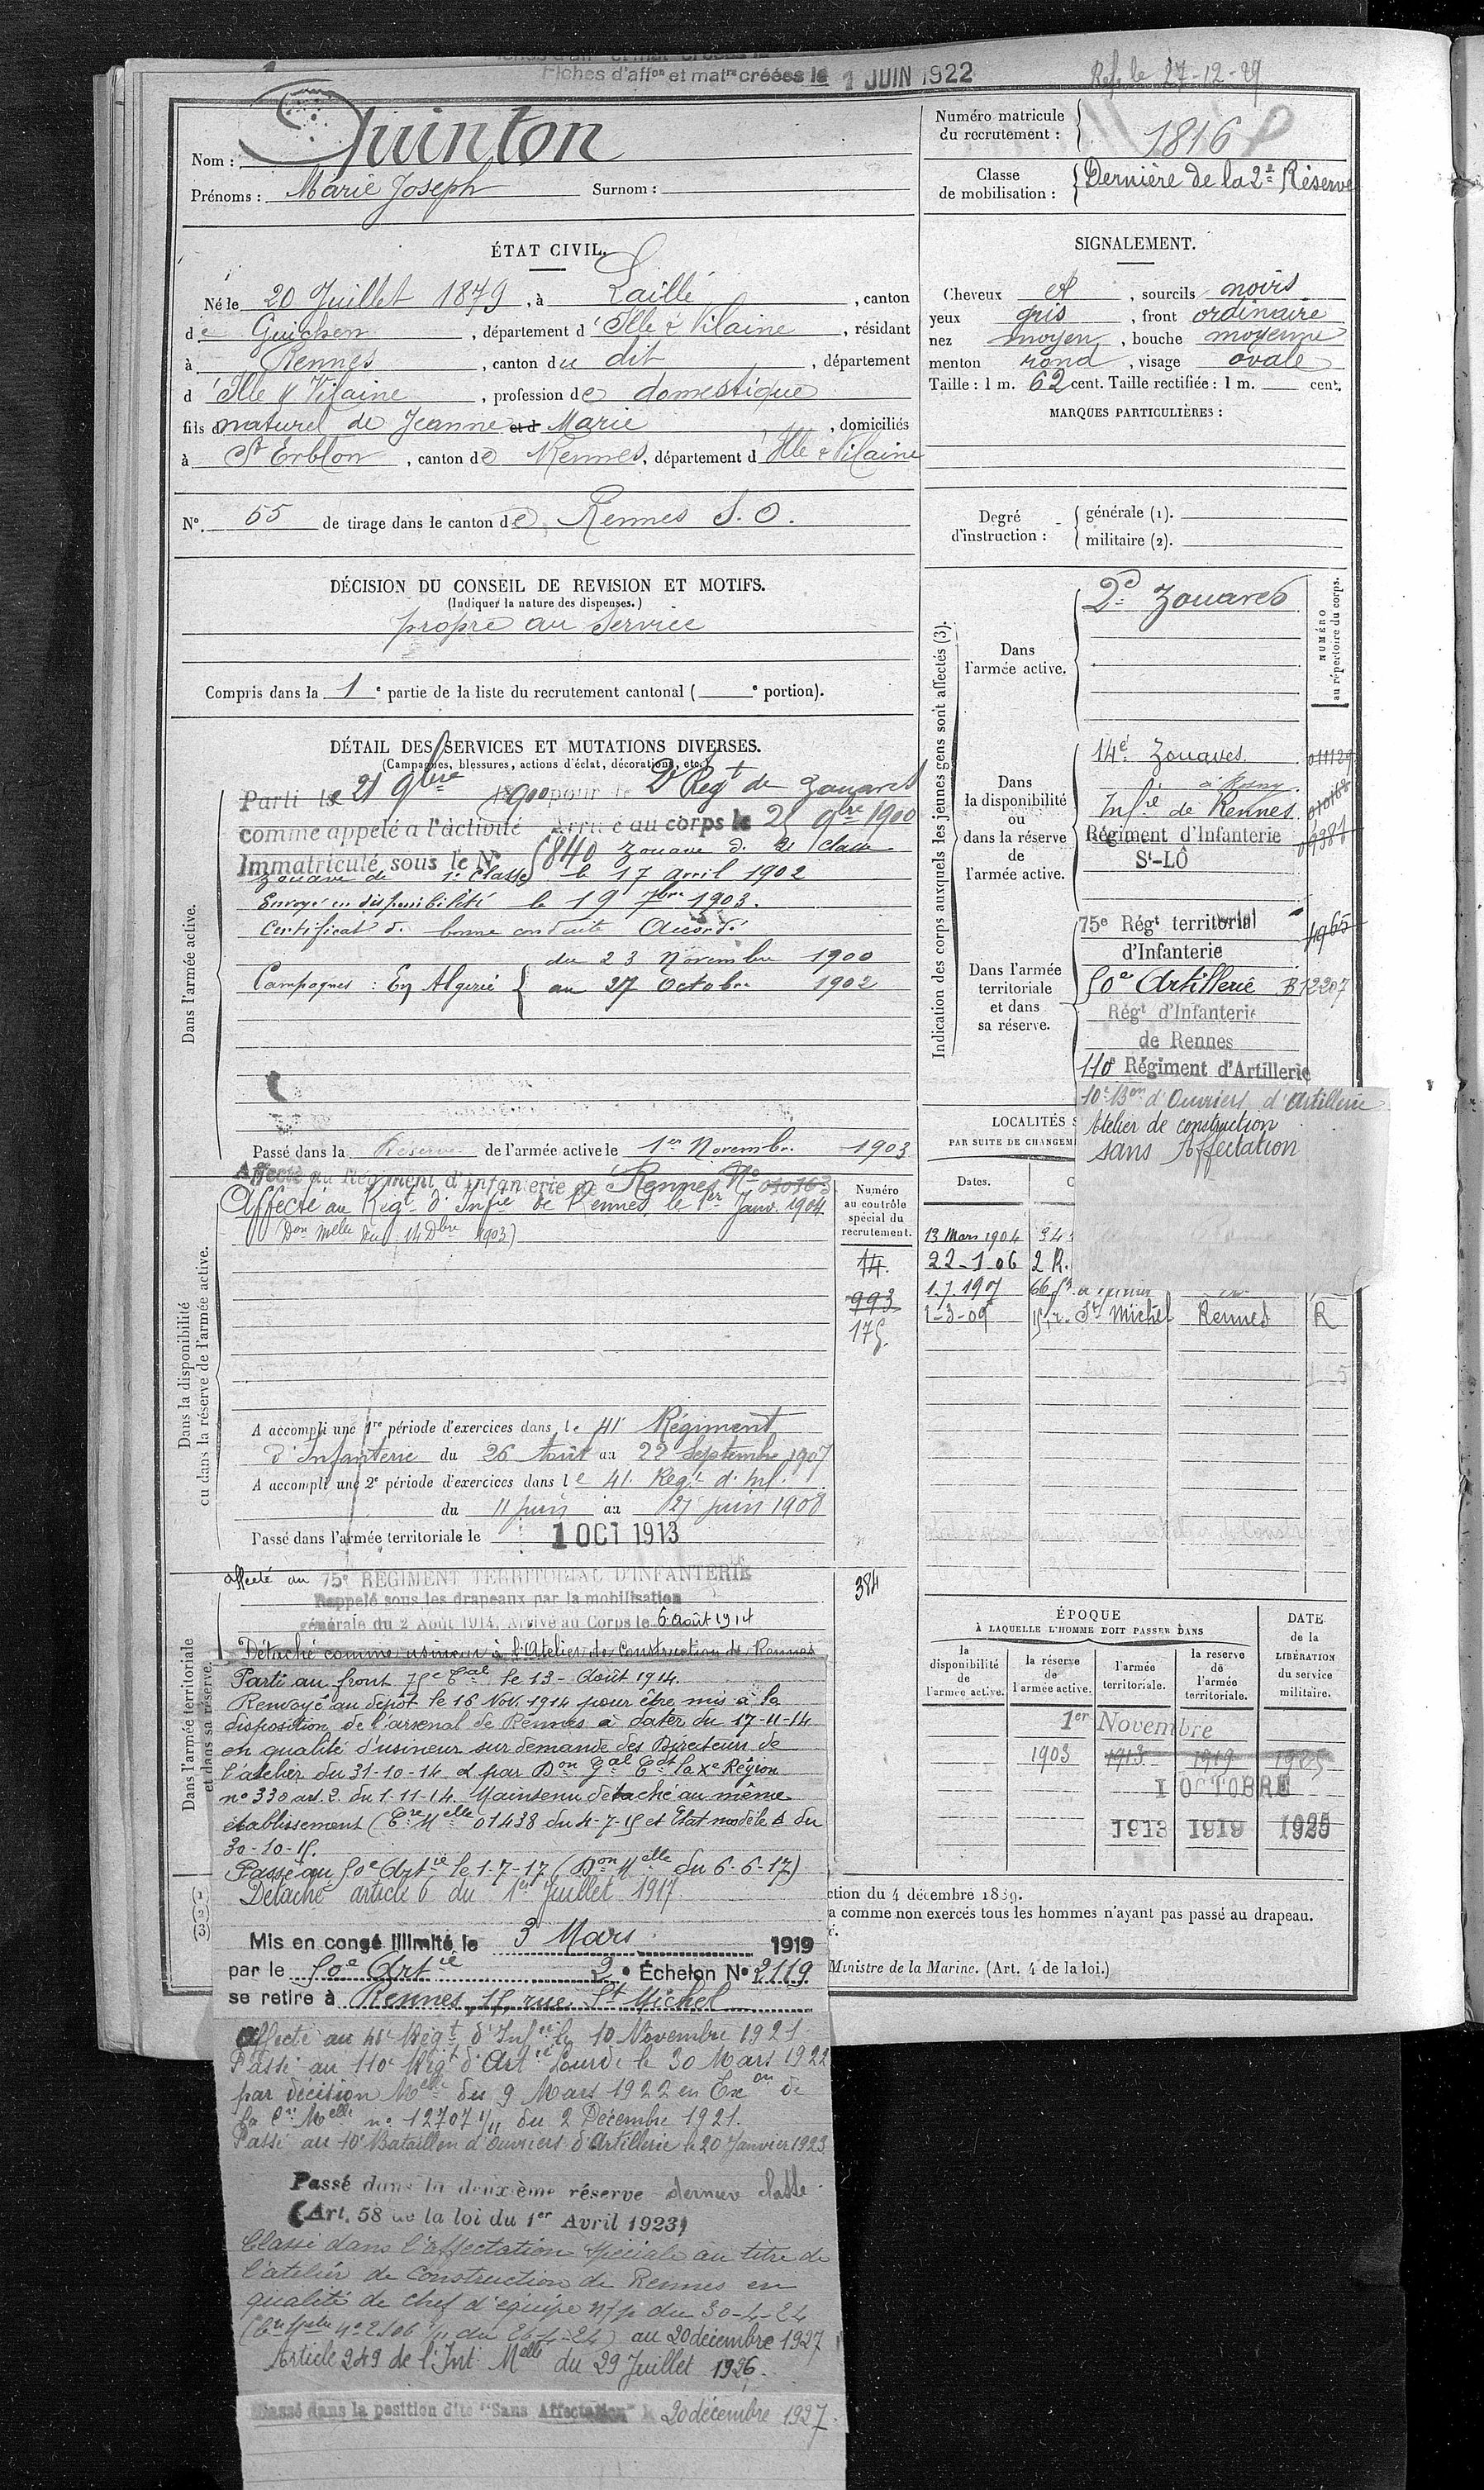 Fiches d'aff^on et mat^re créées le 1 JUIN 1922
Ref. le 27-12-29
Nom : Quinton
Prénoms : Marie Joseph Surnom :
Numéro matricule du recrutement : 1816
Classe de mobilisation : Dernière de la 2e Réserve
ÉTAT CIVIL.
Né le 20 Juillet 1879, à Laillé, canton
de Guichen, département d'Ille & Vilaine, résidant
à Rennes, canton du dit, département
d'Ille & Vilaine, profession de domestique
fils naturel de Jeanne et d Marie, domiciliés
à St Erblon, canton de Rennes, département d'Ille & Vilaine
N° 55 de tirage dans le canton de Rennes S.O.
SIGNALEMENT.
Cheveux et, sourcils noirs
yeux gris, front ordinaire
nez moyen, bouche moyenne
menton rond, visage ovale
Taille : 1 m. 62 cent. Taille rectifiée : 1 m. cent.
MARQUES PARTICULIÈRES :
Degré d'instruction : générale (1).
militaire (2).
DÉCISION DU CONSEIL DE REVISION ET MOTIFS.
(Indiquer la nature des dispenses.)
propre au service
Compris dans la 1e partie de la liste du recrutement cantonal ( e portion).
DÉTAIL DES SERVICES ET MUTATIONS DIVERSES.
(Campagnes, blessures, actions d'éclat, décorations, etc.)
Dans l'armée active.
Parti le 21 9bre 1900 pour le 2e Regt de Zouaves
comme appelé a l'activité Arrivé au corps le 25 9bre 1900
Immatriculé sous le N° 5840 Zouave de 2e classe
Zouave de 1e Classe le 17 avril 1902
Envoyé en disponibilité le 19 7bre 1903.
Certificat de bonne conduite Accordé
Campagnes : En Algérie { du 23 Novembre 1900
au 27 Octobre 1902
Passé dans la Réserve de l'armée active le 1er Novembre 1903
Dans la disponibilité ou dans la réserve de l'armée active.
Affecté au Régiment d'Infanterie de Rennes N° 010163
Affecté au Regt d'Infie de Rennes le 1er Janv. 1904
Don Melle du 14 Dbre 1903)
A accompli une 1re période d'exercices dans le 41e Régiment
d'Infanterie du 26 Août au 22 Septembre 1907
A accompli une 2e période d'exercices dans le 41e Regt d'Inf.
du 11 juin au 27 juin 1908
Passé dans l'armée territoriale le 1 OCT 1913
Numéro au contrôle spécial du recrutement.
14.
993
175.
384
Dans l'armée territoriale et dans sa réserve.
affecté au 75e REGIMENT TERRITORIAL D'INFANTERIE
Rappelé sous les drapeaux par la mobilisation
générale du 2 Août 1914. Arrivé au Corps le 6 Août 1914
Détaché comme usineur à l'Atelier de Construction de Rennes
Parti au front 75e Tal le 13 - Août 1914.
Renvoyé au dépôt le 16 Nov. 1914 pour être mis à la
disposition de l'arsenal de Rennes à dater du 17-11-14
en qualité d'usineur sur demande des Directeurs de
l'atelier du 31-10-14 et par Don Gal Cdt la Xe Région
n° 330 art. 2. du 1-11-14. Maintenu détaché au même
établissement (Cre Melle 01438 du 4-7-15 et Etat modèle A du
30-10-15.
Passé au 50e Artie le 1-7-17 (Don Melle du 6-6-17)
Détaché article 6 du 1er Juillet 1917.
Mis en congé illimité le 3 Mars 1919
par le 50e Artie 2e Échelon N° 2119
se retire à Rennes, 15, rue St Michel
Affecté au 41e Régt d'Infie le 10 Novembre 1921
Passé au 110e Régt d'Artie Lourde le 30 Mars 1922
par décision Melle du 9 Mars 1922 en Exon de
la Cre Melle n° 12707 1/11 du 2 Décembre 1921.
Passé au 10e Bataillon d'Ouvriers d'Artillerie le 20 Janvier 1923
Passé dans la deuxième réserve dernière classe
(Art. 58 de la loi du 1er Avril 1923)
Classé dans l'affectation spéciale au titre de
l'atelier de Construction de Rennes en
qualité de chef d'équipe du 30-4-24
(Cre Melle n° 2106 1/11 du 26-4-24) au 20 décembre 1927
Article 249 de l'Int. Melle du 29 Juillet 1926.
Passé dans la position dite "Sans Affectation" le 20 décembre 1927.
Indication des corps auxquels les jeunes gens sont affectés (3).
NUMÉRO au répertoire du corps.
Dans l'armée active.
2e Zouaves
Dans la disponibilité ou dans la réserve de l'armée active.
14e Zouaves 011129
à Rosny
Infie de Rennes 010163
Régiment d'Infanterie
St-LÔ
Dans l'armée territoriale et dans sa réserve.
75e Régt territorial 4965
d'Infanterie
50e Artillerie B12207
Régt d'Infanterie
de Rennes
110e Régiment d'Artillerie
10e Bon d'Ouvriers d'Artillerie
Atelier de construction
sans Affectation
LOCALITÉS S
PAR SUITE DE CHANGEM
Dates.
C
13 Mars 1904 34
22-1-06 2 R.
1.7.1907 66
1-3-09 15 r. St Michel Rennes R
ÉPOQUE
À LAQUELLE L'HOMME DOIT PASSER DANS
la disponibilité de l'armée active.
la réserve de l'armée active.
l'armée territoriale.
la reserve de l'armée territoriale.
DATE de la LIBÉRATION du service militaire.
1er Novembre
1903 1913 1919 1925
1 OCTOBRE
1913 1919 1925
(1)
(2)
(3)
ction du 4 décembre 1889.
a comme non exercés tous les hommes n'ayant pas passé au drapeau.
é.
Ministre de la Marine. (Art. 4 de la loi.)